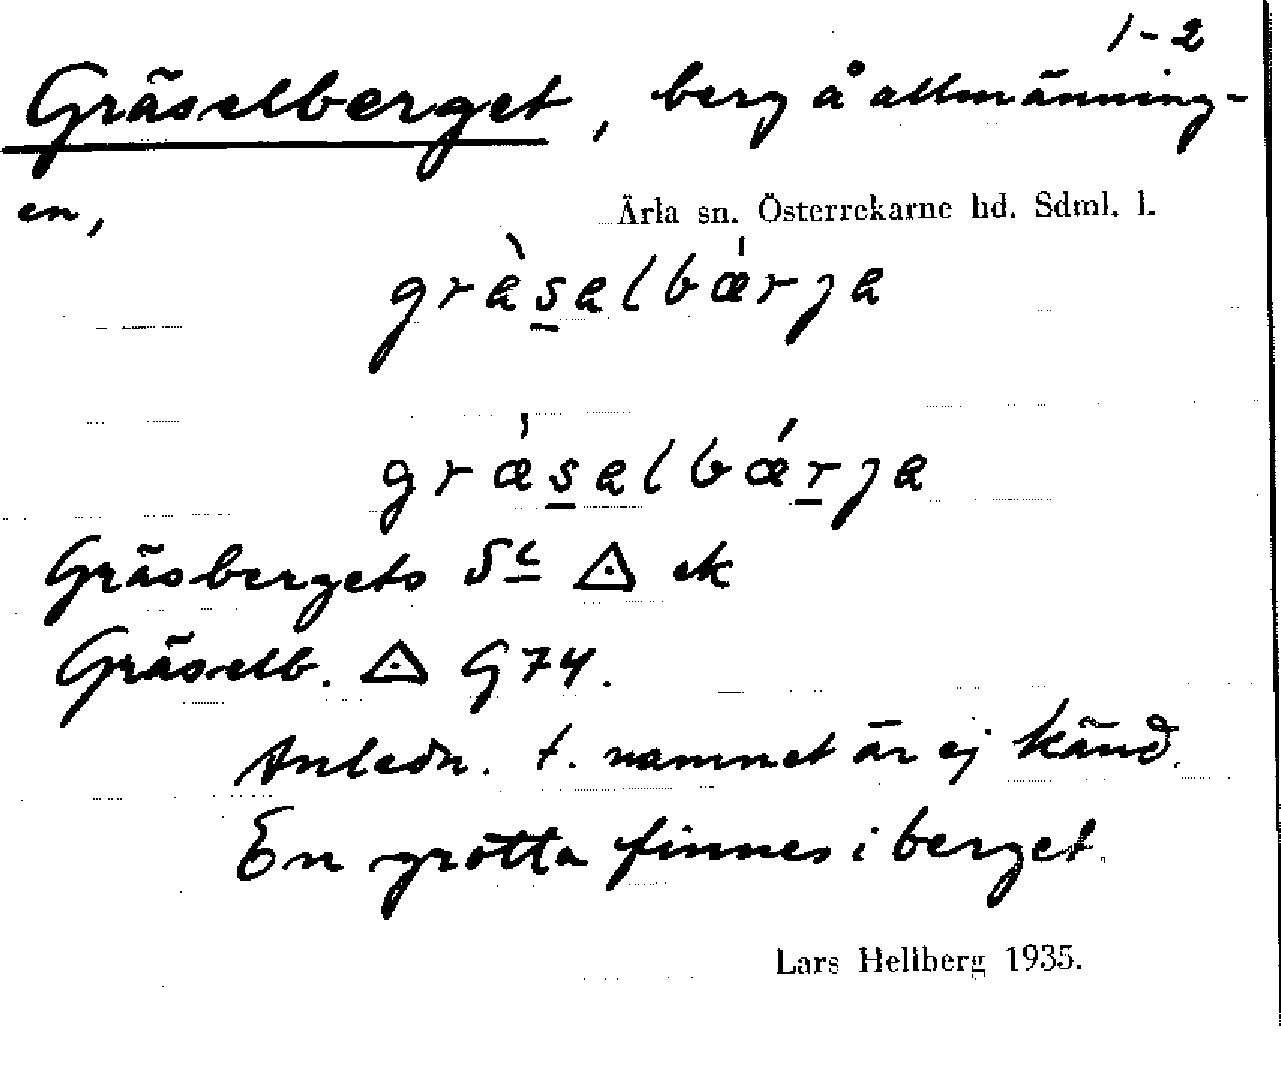 1-2
Gräselberget, berg å allmänning-
en,
Ärla sn. Österrekarne hd. Sdml. l.
gràsalbǽrja
grǽsalbǽrja
Gräsbergets ek
Gräselb. G74.
Anledn. t. namnet är ej känd.
En grotta finnes i berget.
Lars Hellberg 1935.